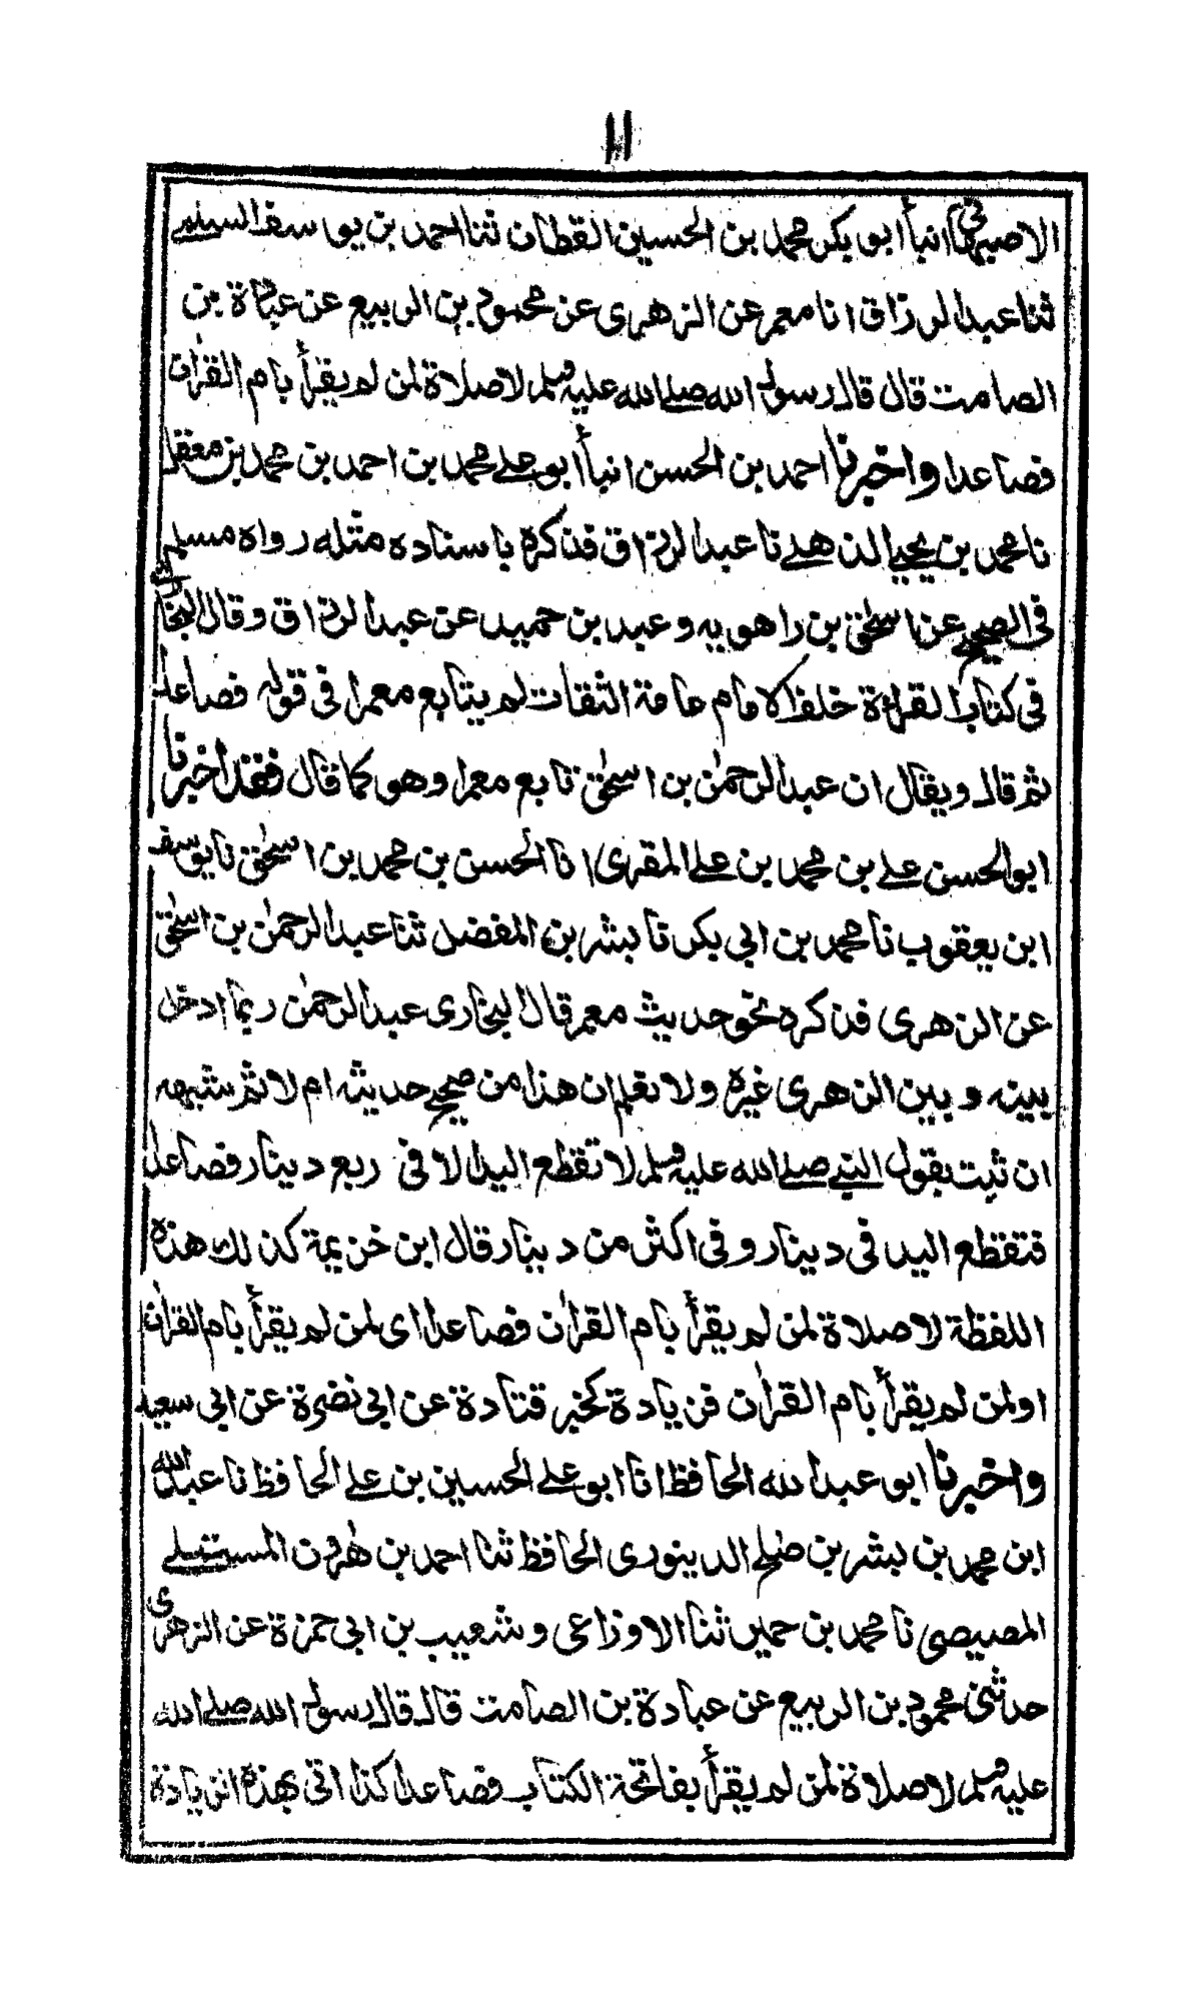 ١١
الاصبهانى انبأ ابو بكر محمد بن الحسين القطان ثنا احمد بن يوسف السلمى
ثنا عبد الرزاق انا معمر عن الزهرى عن محمود بن الربيع عن عبادة بن
الصامت قال قال رسول الله صلى الله عليه وسلم لا صلاة لمن لم يقرأ بام القرأن
فصاعدا واخبرنا احمد بن الحسن انبأ ابو على محمد بن احمد بن محمد بن معقل
نا محمد بن يحيى الذهلى نا عبد الرزاق فذكره باسناده مثله رواه مسلم
فى الصحيح عن اسحٰق بن راهويه وعبد بن حميد عن عبد الرزاق وقال البخارى
فى كتاب القراءة خلف الامام عامة الثقات لم يتابع معمرا فى قوله فصاعدا
ثم قال ويقال ان عبد الرحمٰن بن اسحٰق تابع معمرا وهو كما قال فقد اخبرنا
ابو الحسن على بن محمد بن على المقرى انا الحسن بن محمد بن اسحٰق نا يوسف
ابن يعقوب نا محمد بن ابى بكر نا بشر بن المفضل ثنا عبد الرحمٰن بن اسحٰق
عن الزهرى فذكره نحو حديث معمر قال البخارى عبد الرحمٰن ربما ادخل
بينه وبين الزهرى غيره ولا نعلم ان هذا من صحيح حديثه ام لا ثم شبهه
ان ثبت بقول النبى صلى الله عليه وسلم لا تقطع اليد الا فى ربع دينار فصاعدا
فتقطع اليد فى دينار وفى اكثر من دينار قال ابن خزيمة كذلك هذه
اللفظة لا صلاة لمن لم يقرأ بام القرأن فصاعدا اى لمن لم يقرأ بام القرأن
او لمن لم يقرأ بام القرأن فزيادة كخبر قتادة عن ابى نضرة عن ابى سعيد
واخبرنا ابو عبد الله الحافظ انا ابو على الحسين بن على الحافظ نا عبد الله
ابن محمد بن بشر بن صٰلح الدينورى الحافظ ثنا احمد بن هٰرون المستملى
المصيصى نا محمد بن حمير ثنا الاوزاعى وشعيب بن ابى حمزة عن الزهرى
حدثنى محمود بن الربيع عن عبادة بن الصامت قال قال رسول الله صلى الله
عليه وسلم لا صلاة لمن لم يقرأ بفاتحة الكتاب فصاعدا كذا اتى بهذه الزيادة